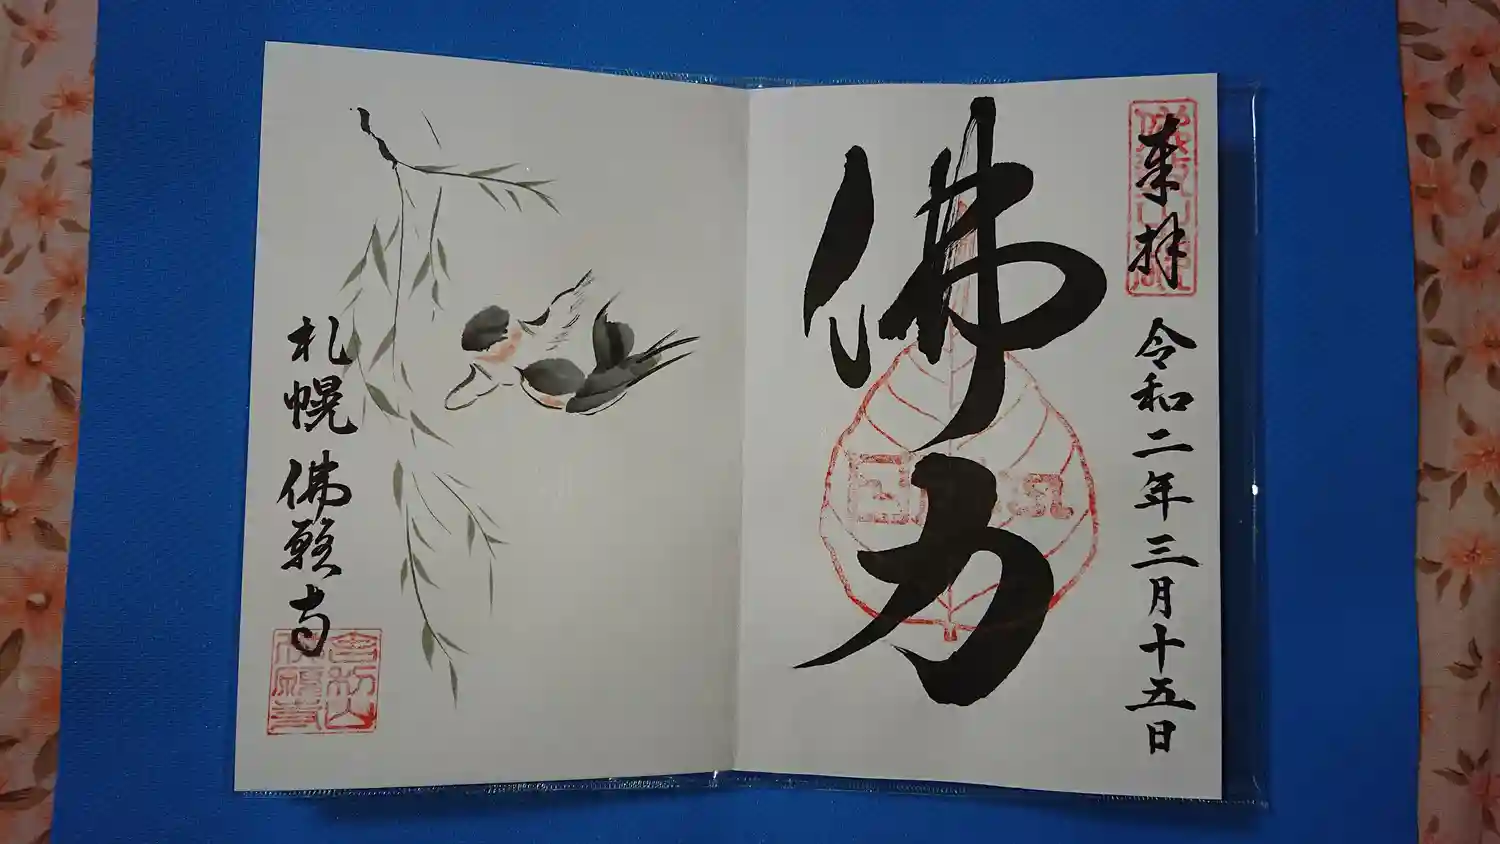 来拝
令和二年三月十五日
佛力
札幌
佛願寺